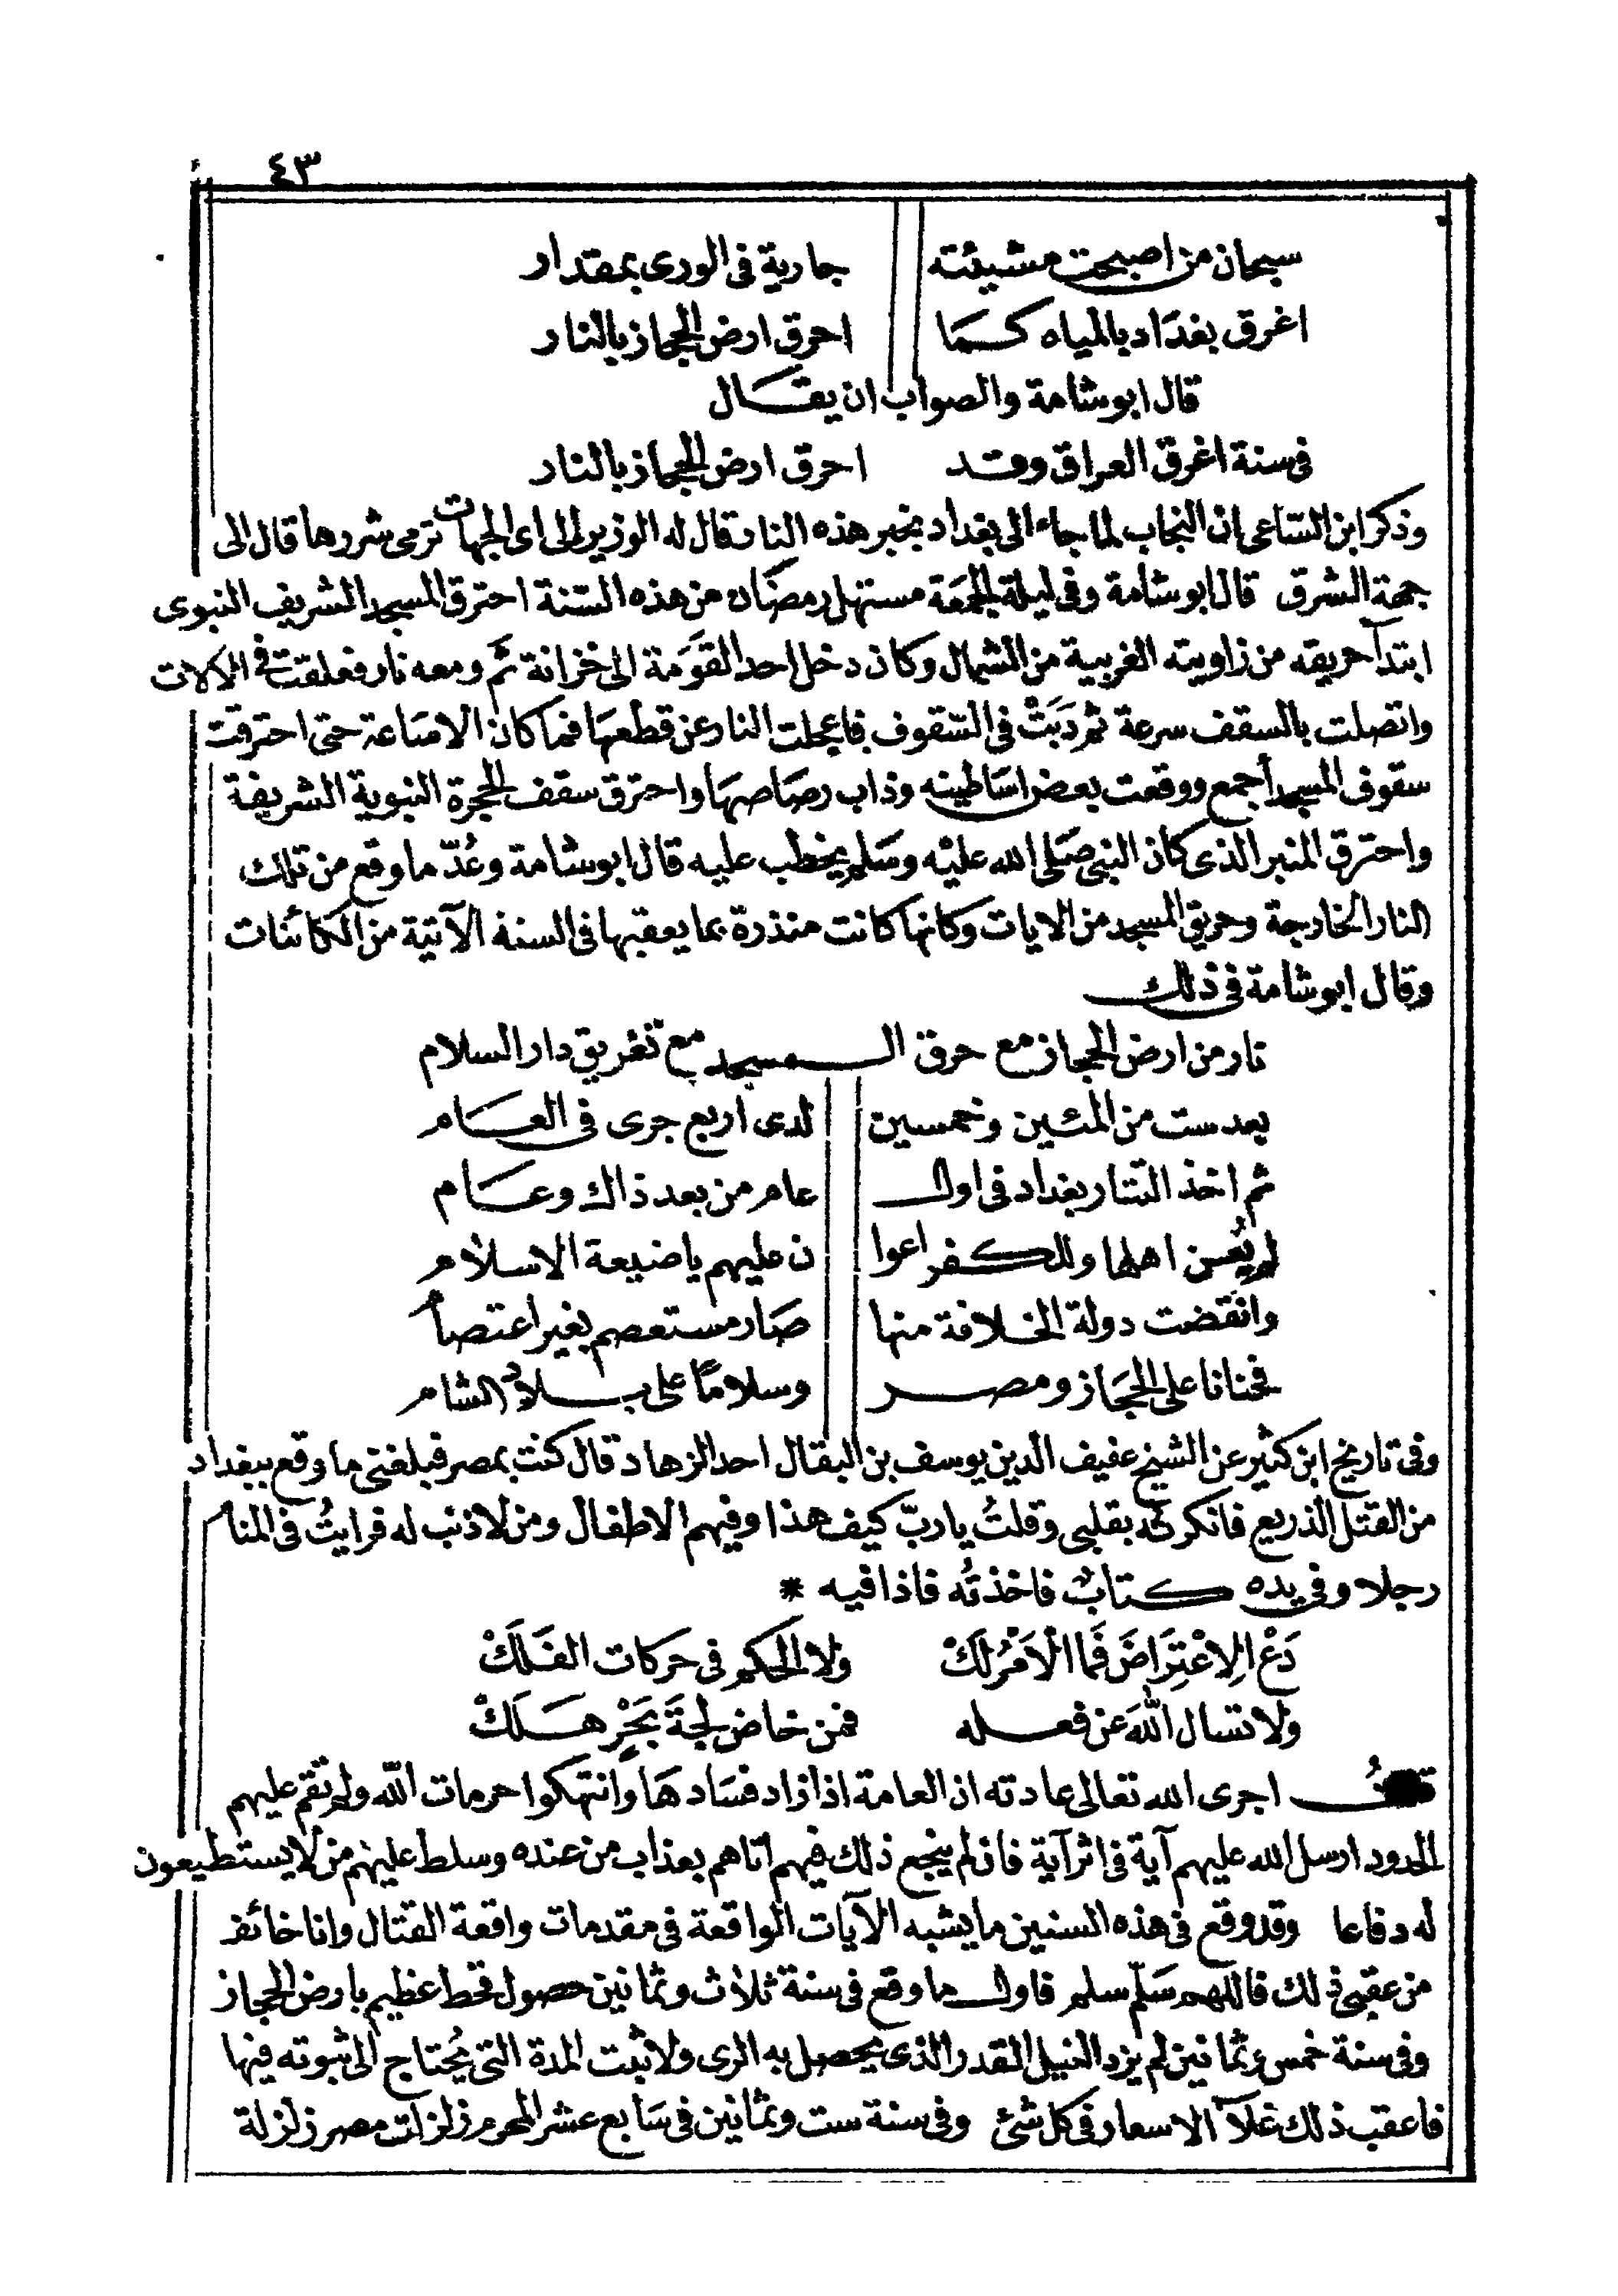 ٤٣
سبحان من اصبحت مشيئته جارية فى الورى بمقدار
اغرق بغداد بالمياه كما احرق ارض الحجاز بالنار
قال ابو شامة والصواب ان يقال
فى سنة اغرق العراق وقد احرق ارض الحجاز بالنار
وذكر ابن الساعى ان النجاب لما جاء الى بغداد بخبر هذه النار قال له الوزير الى اى الجهات ترمى شررها قال الى
جهة الشرق قال ابو شامة وفى ليلة الجمعة مستهل رمضان من هذه السّنة احترق المسجد الشريف النبوى
ابتدآ حريقه من زاويته الغربية من الشمال وكان دخل احد القَوَمة الى خزانة ثَمّ ومعه نار فعلقت فى الالات
واتصلت بالسقف سرعة ثم دَبَتْ فى السّقوف فاعجلت النار عن قطعها فما كان الا ساعة حتى احترقت
سقوف المسجد أجمع ووقعت بعض اساطينه وذاب رصاصها واحترق سقف الحجرة النبوية الشريفة
واحترق المنبر الذى كان النبى صَلى الله عليْه وسَلم يخطب عليه قال ابو شامة وعُدّ ما وقع من تلك
النار الخارجة وحريق المسجد من الايات وكانها كانت منذرة بما يعقبها فى السنة الآتية من الكائنات
وقال ابو شامة فى ذلك
نار من ارض الحجاز مع حرق المسجد مع تغريق دار السلام
بعد ست من المئين وخمسين لدى اربع جرى فى العام
ثم اخذ التتار بغداد فى اول عام من بعد ذاك وعام
لم يُعن اهلها وللكفر اعوا ن عليهم يا ضيعة الاسلام
وانقضت دولة الخلافة منها صار مستعصم بغير اعتصام
فحنانا على الحجاز ومصر وسلامًا على بلاد الشام
وفى تاريخ ابن كثير عن الشيخ عفيف الدين يوسف بن البقال احد الزهاد قال كنت بمصر فبلغنى ما وقع ببغداد
من القتل الذريع فانكرته بقلبى وقلتُ يا ربّ كيف هذا وفيهم الاطفال ومن لا ذنب له فرايتُ فى المنام
رجلا وفى يده كتابٌ فاخذتُه فاذا فيه *
دَعْ الِاعْتِرَاضَ فَما الْاَمْرُ لَكْ ولا الحكم فى حركات الفَلَكْ
ولا تسال اللهَ عن فعله فمن خاض لجةَ بَحْرٍ هَلَكْ
قلتُ اجرى الله تعالى عادته ان العامة اذا زاد فسَادهَا وانتهكوا حرمات الله ولم تقم عليهم
الحدود ارسل الله عليهم آية فى اثر آية فان لم ينجع ذلك فيهم اتاهم بعذاب من عنده وسلط عليهم من لا يستطيعون
له دفاعا وقد وقع فى هذه السنين ما يشبه الآيات الواقعة فى مقدمات واقعة القتال وانا خائف
من عقبى ذلك فاللهم سَلّم سلم فاول ما وقع فى سنة ثلاث وثمانين حصول قحط عظيم بارض الحجاز
وفى سنة خمس وثمانين لم يزد النيل القدر الذى يحصل به الرى ولا ثبت المدة التى يُحتاج الى ثبوته فيها
فاعقب ذلك غلآ الاسعار فى كل شئ وفى سنة ست وثمانين فى سَابع عشر المحرم زلزلت مصر زلزلة